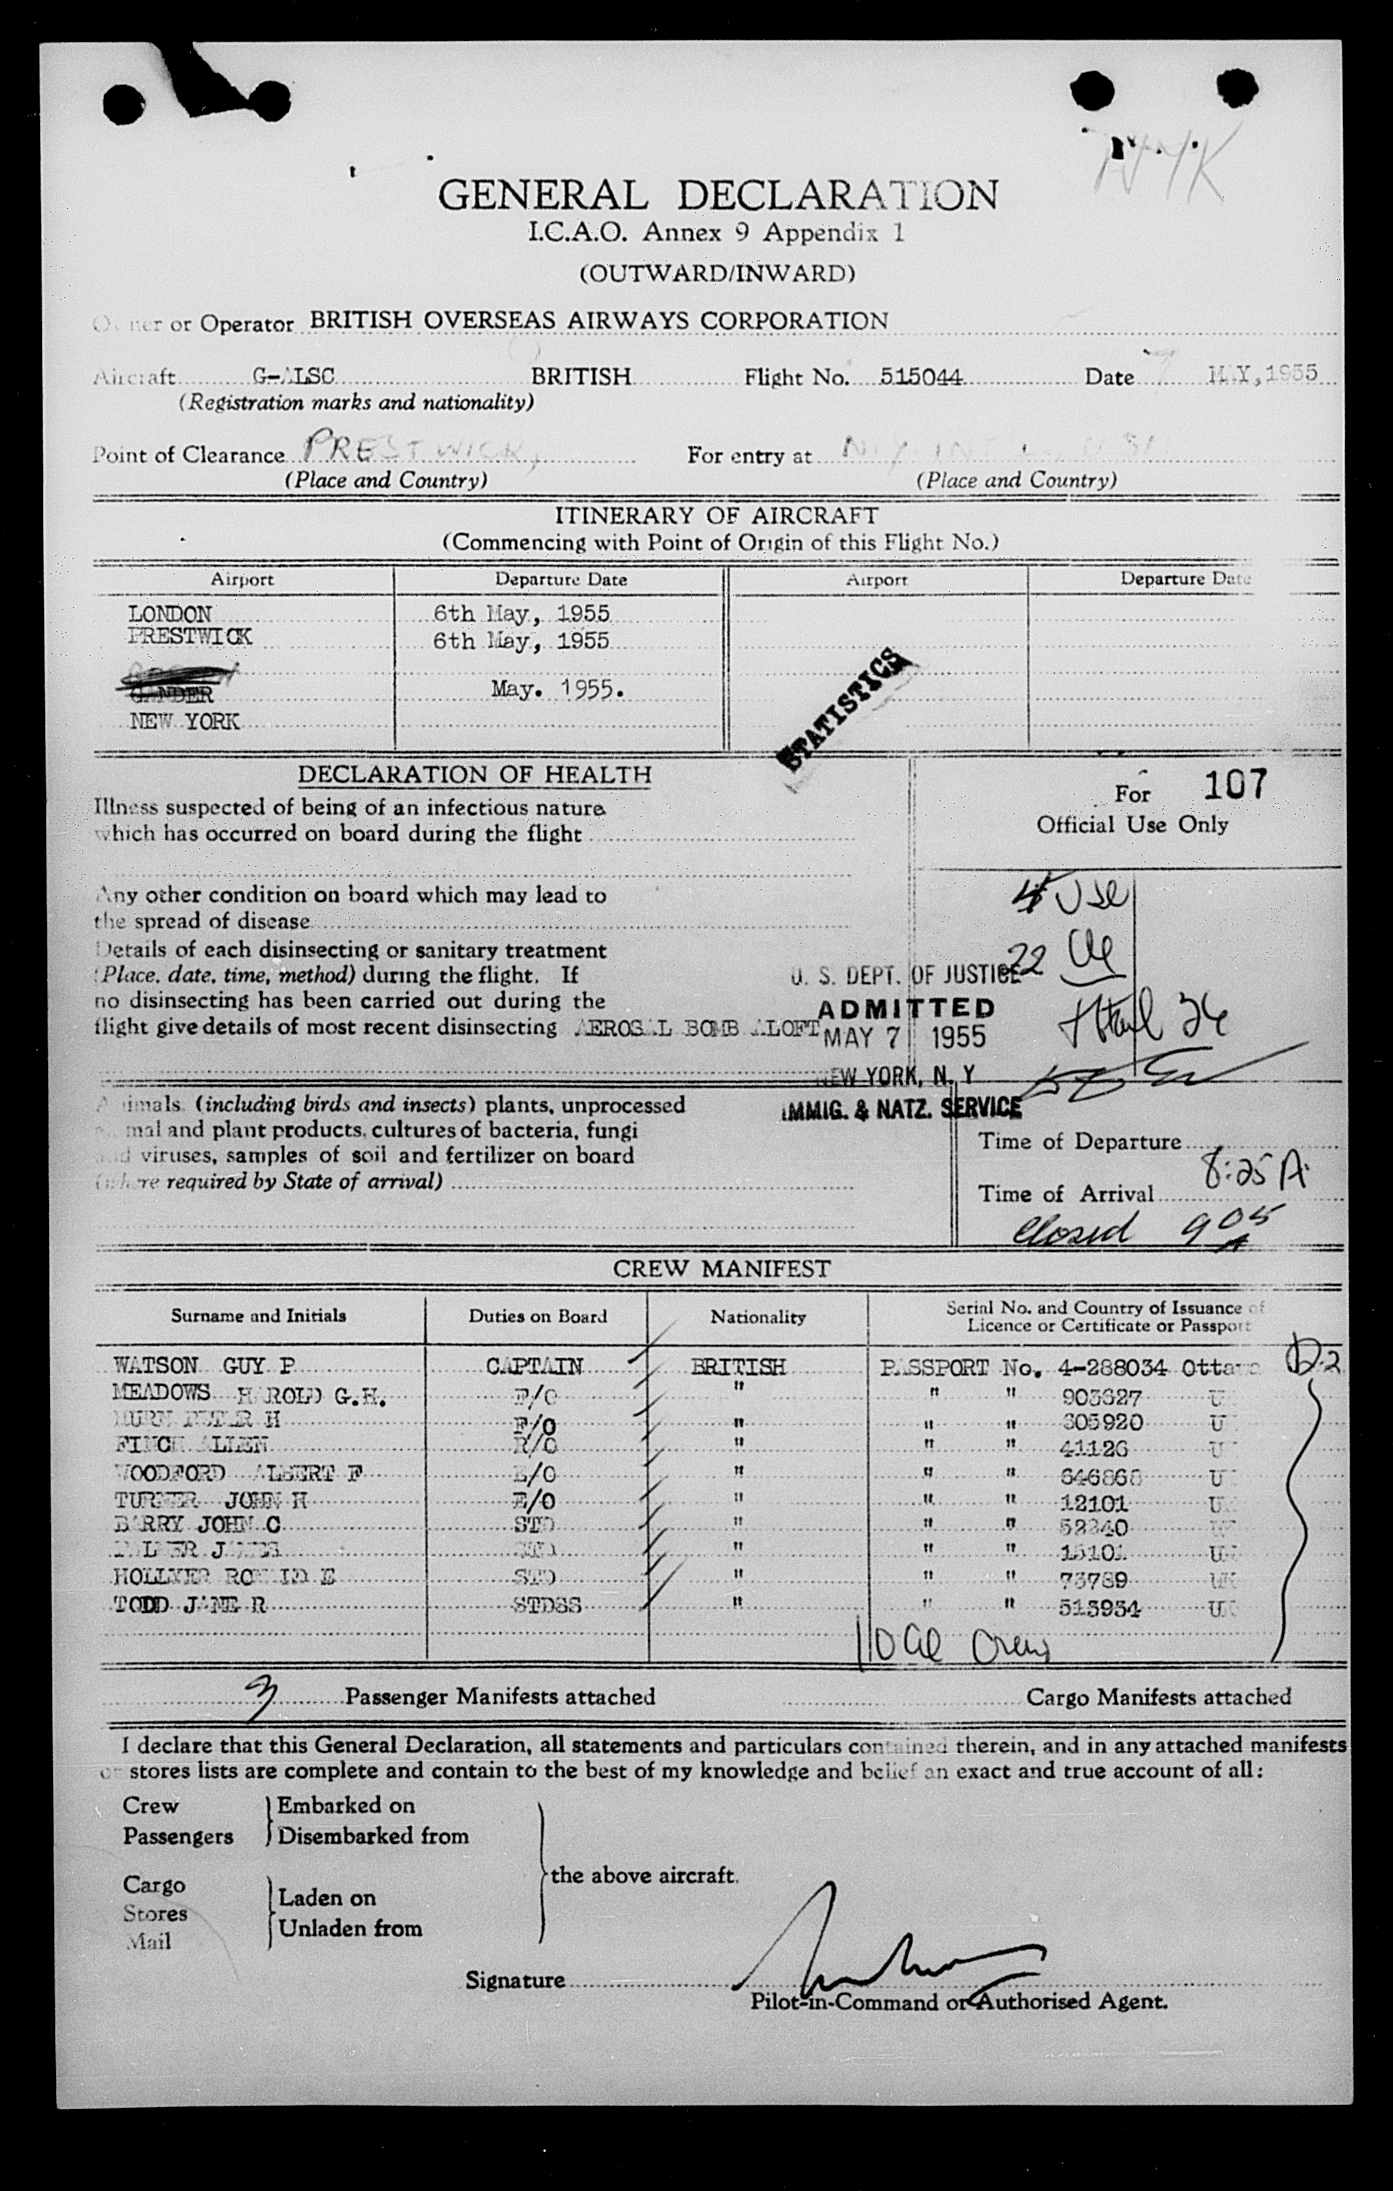 GENERAL DECLARATION
I.C.A.O. Annex 9 Appendix 1
(OUTWARD/INWARD)
Owner or Operator BRITISH OVERSEAS AIRWAYS CORPORATION
Aircraft G-ALSC BRITISH Flight No. 515044 Date 7 MAY, 1955
(Registration marks and nationality)
Point of Clearance PRESTWICK, For entry at
(Place and Country) (Place and Country)
ITINERARY OF AIRCRAFT
(Commencing with Point of Origin of this Flight No.)
Airport Departure Date Airport Departure Date
LONDON 6th May, 1955
PRESTWICK 6th May, 1955
GANDER May. 1955.
NEW YORK
STATISTICS
DECLARATION OF HEALTH
Illness suspected of being of an infectious nature
which has occurred on board during the flight
Any other condition on board which may lead to
the spread of disease
Details of each disinsecting or sanitary treatment
(Place, date, time, method) during the flight. If
no disinsecting has been carried out during the
flight give details of most recent disinsecting AEROSAL BOMB ALOFT
For 107
Official Use Only
22
U. S. DEPT. OF JUSTICE
ADMITTED
MAY 7 1955
NEW YORK, N. Y
IMMIG. & NATZ. SERVICE
Animals (including birds and insects) plants, unprocessed
animal and plant products, cultures of bacteria, fungi
and viruses, samples of soil and fertilizer on board
(where required by State of arrival)
Time of Departure
Time of Arrival 8:25 A.
Closed 905 A
CREW MANIFEST
Surname and Initials Duties on Board Nationality Serial No. and Country of Issuance of
Licence or Certificate or Passport
WATSON GUY P CAPTAIN BRITISH PASSPORT No. 4-288034 Ottawa D-2
MEADOWS HAROLD G.H. F/O " " " 903627 U
PETER H F/O " " " 305920 U
FINCH ALLEN R/O " " " 41126 U
WOODFORD ALBERT F E/O " " " U
TURNER JOHN H E/O " " " 12101 U
BARRY JOHN C STD " " " 52340
JAMES STD " " " U
HOLLYER RONALD E STD " " " 73789 UK
TODD JANE R STDSS " " " 513934 U
10 Crew
3 Passenger Manifests attached Cargo Manifests attached
I declare that this General Declaration, all statements and particulars contained therein, and in any attached manifests
or stores lists are complete and contain to the best of my knowledge and belief an exact and true account of all:
Crew Embarked on
Passengers Disembarked from
the above aircraft.
Cargo Laden on
Stores
Unladen from
Mail
Signature
Pilot-in-Command or Authorised Agent.